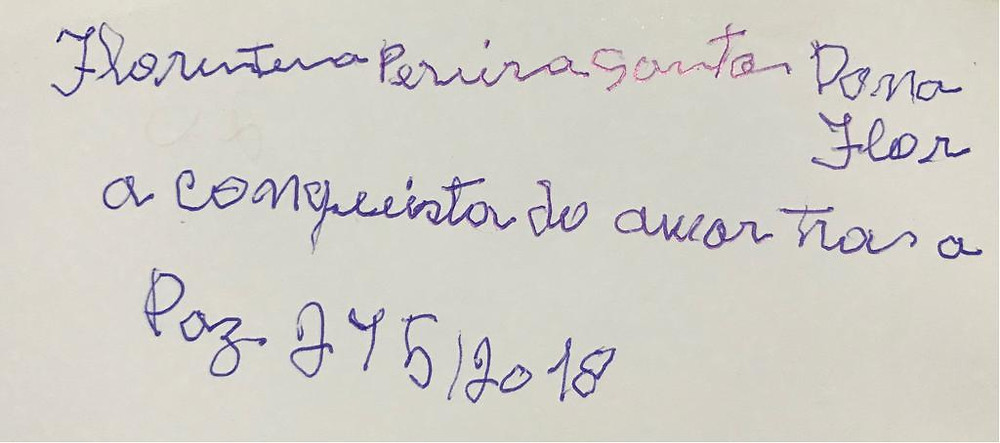 Florentina Pereira Santos Dona
Flor
a conquista do amor tras a
Paz 275/2018